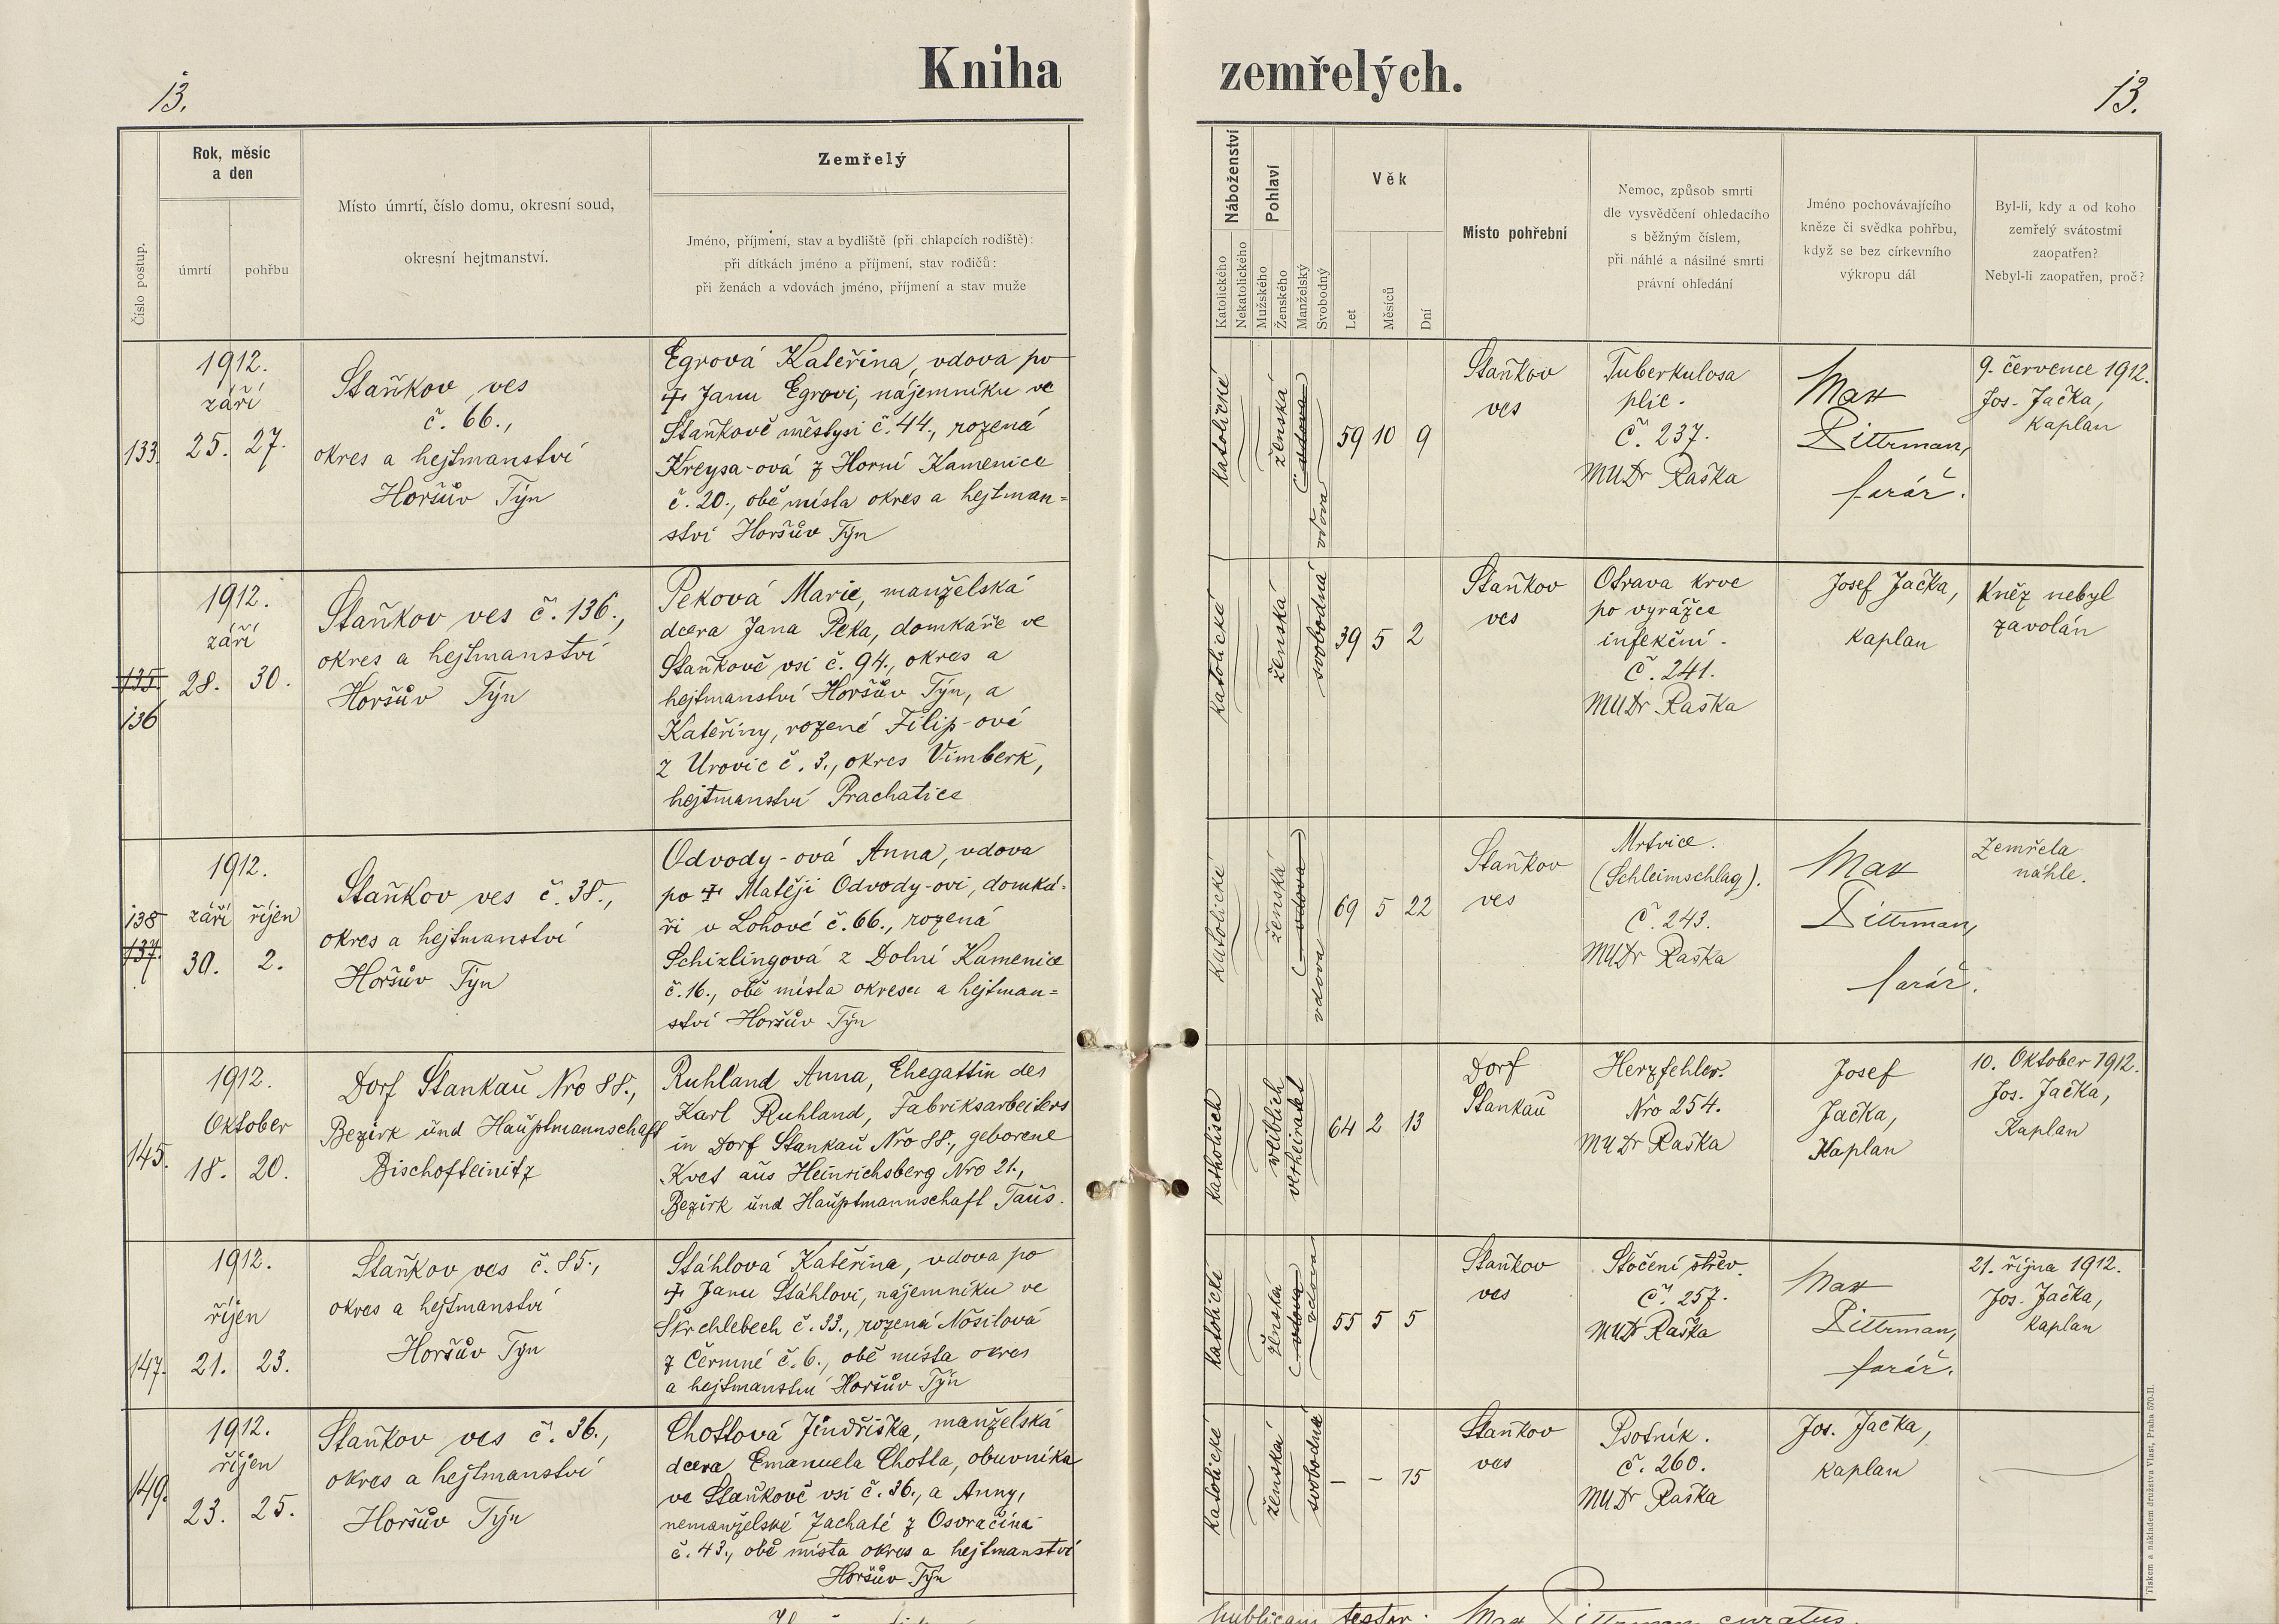 Kniha zemřelých.
13.
13.
Číslo postup.
Rok, měsíc
a den
úmrtí
pohřbu
Místo úmrtí, číslo domu, okresní soud,
okresní hejtmanství.
Zemřelý
Jméno, příjmení, stav a bydliště (při chlapcích rodiště):
při dítkách jméno a příjmení, stav rodičů:
při ženách a vdovách jméno, příjmení a stav muže
Náboženství
Katolického
Nekatolického
Pohlaví
Mužského
Ženského
Manželský
Svobodný
Věk
Let
Měsíců
Dní
Místo pohřební
Nemoc, způsob smrti
dle vysvědčení ohledacího
s běžným číslem,
při náhlé a násilné smrti
právní ohledání
Jméno pochovávajícího
kněze či svědka pohřbu,
když se bez církevního
výkropu dál
Byl-li, kdy a od koho
zemřelý svátostmi
zaopatřen?
Nebyl-li zaopatřen, proč?
133.
1912.
září
25. 27.
Staňkov ves
č. 66.,
okres a hejtmanství
Horšův Týn
Egrová Kateřina, vdova po
✝ Janu Egrovi, nájemníku ve
Staňkově městysi č. 44., rozená
Kreysa-ová z Horní Kamenice
č. 20., obě místa okres a hejtman=
ství Horšův Týn
katolické
ženská
(vdova)
vdova
59 10 9
Staňkov
ves
Tuberkulosa
plic.
Č. 237.
MUDr Raška
Max
Dittrman,
farář.
9. července 1912.
Jos. Jačka,
kaplan
135.
136
1912.
září
28. 30.
Staňkov ves č. 136.,
okres a hejtmanství
Horšův Týn
Peková Marie, manželská
dcera Jana Peka, domkáře ve
Staňkově vsi č. 94., okres a
hejtmanství Horšův Týn, a
Kateřiny, rozené Filip-ové
z Úrovic č. 3., okres Vimberk,
hejtmanství Prachatice
katolické
ženská
svobodná
39 5 2
Staňkov
ves
Otrava krve
po vyrážce
infekční.
Č. 241.
MUDr Raška
Josef Jačka,
kaplan
Kněz nebyl
zavolán
138
137.
1912.
září říjen
30. 2.
Staňkov ves č. 38.,
okres a hejtmanství
Horšův Týn
Odvody-ová Anna, vdova
po ✝ Matěji Odvody-ovi, domká=
ři v Lohové č. 66., rozená
Schizlingová z Dolní Kamenice
č. 16., obě místa okresu a hejtman=
ství Horšův Týn
katolické
ženská
(vdova)
vdova
69 5 22
Staňkov
ves
Mrtvice.
(Schleimschlag).
Č. 243.
MUDr Raška
Max
Dittrman,
farář.
Zemřela
náhle.
145.
1912.
Oktober
18. 20.
Dorf Stankau Nro 88.,
Bezirk und Hauptmannschaft
Bischofteinitz
Ruhland Anna, Ehegattin des
Karl Ruhland, Fabriksarbeiters
in Dorf Stankau Nro 88., geborene
Kvet aus Heinrichsberg Nro 21.,
Bezirk und Hauptmannschaft Taus.
katholisch
weiblich
verheiratet
64 2 13
Dorf
Stankau
Herzfehler.
Nro 254.
MUDr Raška
Josef
Jačka,
Kaplan
10. Oktober 1912.
Jos. Jačka,
Kaplan
147.
1912.
říjen
21. 23.
Staňkov ves č. 85.,
okres a hejtmanství
Horšův Týn
Stáhlová Kateřina, vdova po
✝ Janu Stáhlovi, nájemníku ve
Skrchlebech č. 33., rozená Nosilová
z Čermné č. 6., obě místa okres
a hejtmanství Horšův Týn
katolické
ženská
(vdova)
vdova
55 5 5
Staňkov
ves
Stočení střev.
Č. 257.
MUDr Raška
Max
Dittrman,
farář.
21. října 1912.
Jos. Jačka,
kaplan
149.
1912.
říjen
23. 25.
Staňkov ves č. 36.,
okres a hejtmanství
Horšův Týn
Chottová Jindřiška, manželská
dcera Emanuela Chotta, obuvníka
ve Staňkově vsi č. 36., a Anny,
nemanželské Zachaté z Osvračína
č. 43., obě místa okres a hejtmanství
Horšův Týn
katolické
ženská
svobodná
– – 15
Staňkov
ves
Psotník.
č. 260.
MUDr Raška
Jos. Jačka,
kaplan
publicam testor. Max Dittrman curatus.
Tiskem a nákladem družstva Vlast, Praha 570-II.